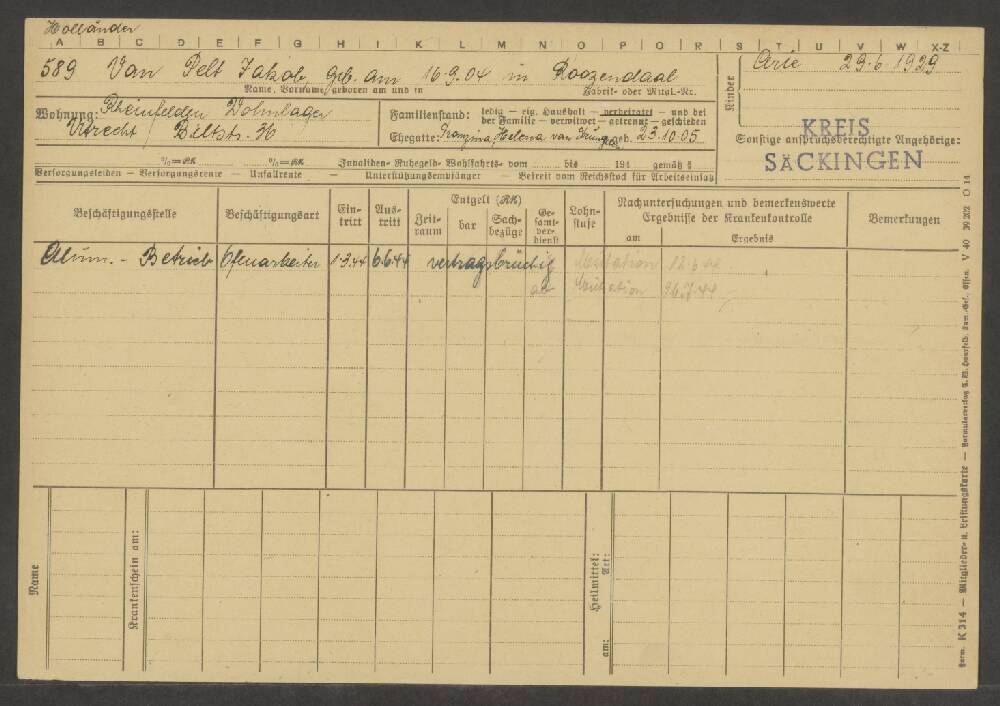 Holländer
A B C D E F G H I K L M N O P Q R S T U V W X-Z
589 Van Pelt Jakob, geb. am 16.9.04 in Roozendaal
Name, Vorname, geboren am und in
Fabrik- oder Mitgl.-Nr.
Kinder
Arie 29.6.1929
Wohnung: Rheinfelden Wohnlager
Utrecht / Biltstr. 36
Familienstand: ledig — eig. Haushalt — verheiratet — und bei
der Familie — verwitwet — getrennt — geschieden
Ehegatte: Franzina Helena van geb. 23.10.05
Sonstige anspruchsberechtigte Angehörige:
KREIS
SÄCKINGEN
%=RM %=RM Invaliden- Ruhegeld- Wohlfahrts- vom bis 194 gemäß §
Versorgungsleiden — Versorgungsrente — Unfallrente — Unterstützungsempfänger — Befreit vom Reichsstock für Arbeitseinsatz
Beschäftigungsstelle
Beschäftigungsart
Ein-
tritt
Aus-
tritt
Entgelt (RM)
Zeit-
raum
bar
Sach-
bezüge
Ge-
samt-
ver-
dienst
Lohn-
stufe
Nachuntersuchungen und bemerkenswerte
Ergebnisse der Krankenkontrolle
am
Ergebnis
Bemerkungen
Alum. - Betrieb Ofenarbeiter 1.3.44 6.6.44 vertragsbrüchig 12.6.44
26.7.44
Name
Krankenschein am:
Heilmittel:
Art:
am:
Form. K 314 — Mitglieder- u. Leistungskarte — V 40 39 202 O 14